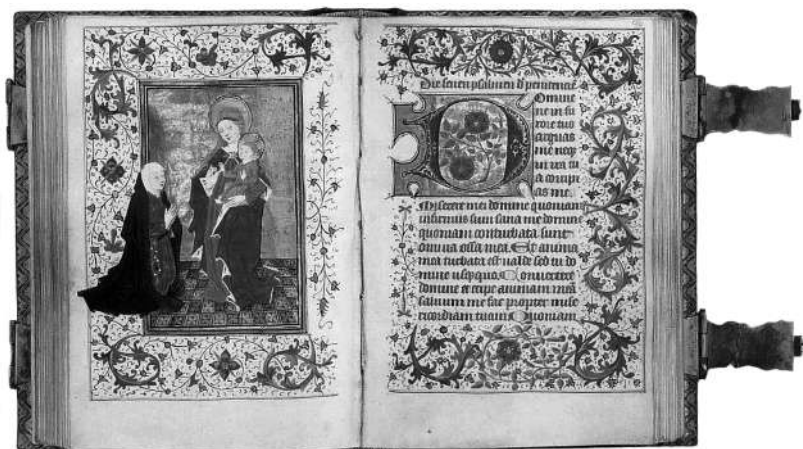 Die seuen psalmen d penitencie
Domine
ne in fu
rore tuo
arguas
me neqz
in ira tu
a corripi
as me.
Miserere mei domine quoniam
infirmus sum sana me domine
quoniam conturbata sunt
omnia ossa mea. Et anima
mea turbata est ualde sed tu do
mine usqzquo. Conuertere
domine et eripe animam meã
saluum me fac propter mise
ricordiam tuam Quoniam